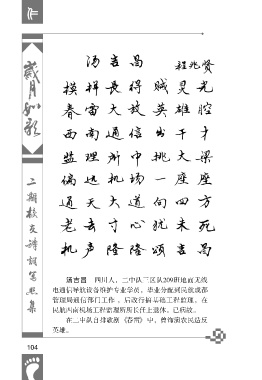 岁月如歌
二期校友诗词写照集
汤吉昌 程兆贤
模样长得贼灵光
春雷大放英雄腔
西南通信出干才
监理所中挑大梁
偏远机场一座座
通天大道向四方
老去寸心犹未死
机声隆隆颂吉昌
汤吉昌 四川人，二中队三区队209班地面无线
电通信导航设备维护专业学员。毕业分配到民航成都
管理局通信部门工作，后改行搞基础工程监理，在
民航西南机场工程监理所所长任上退休。已病故。
在二中队自排歌剧《春雷》中，曾饰演农民造反
英雄。
104